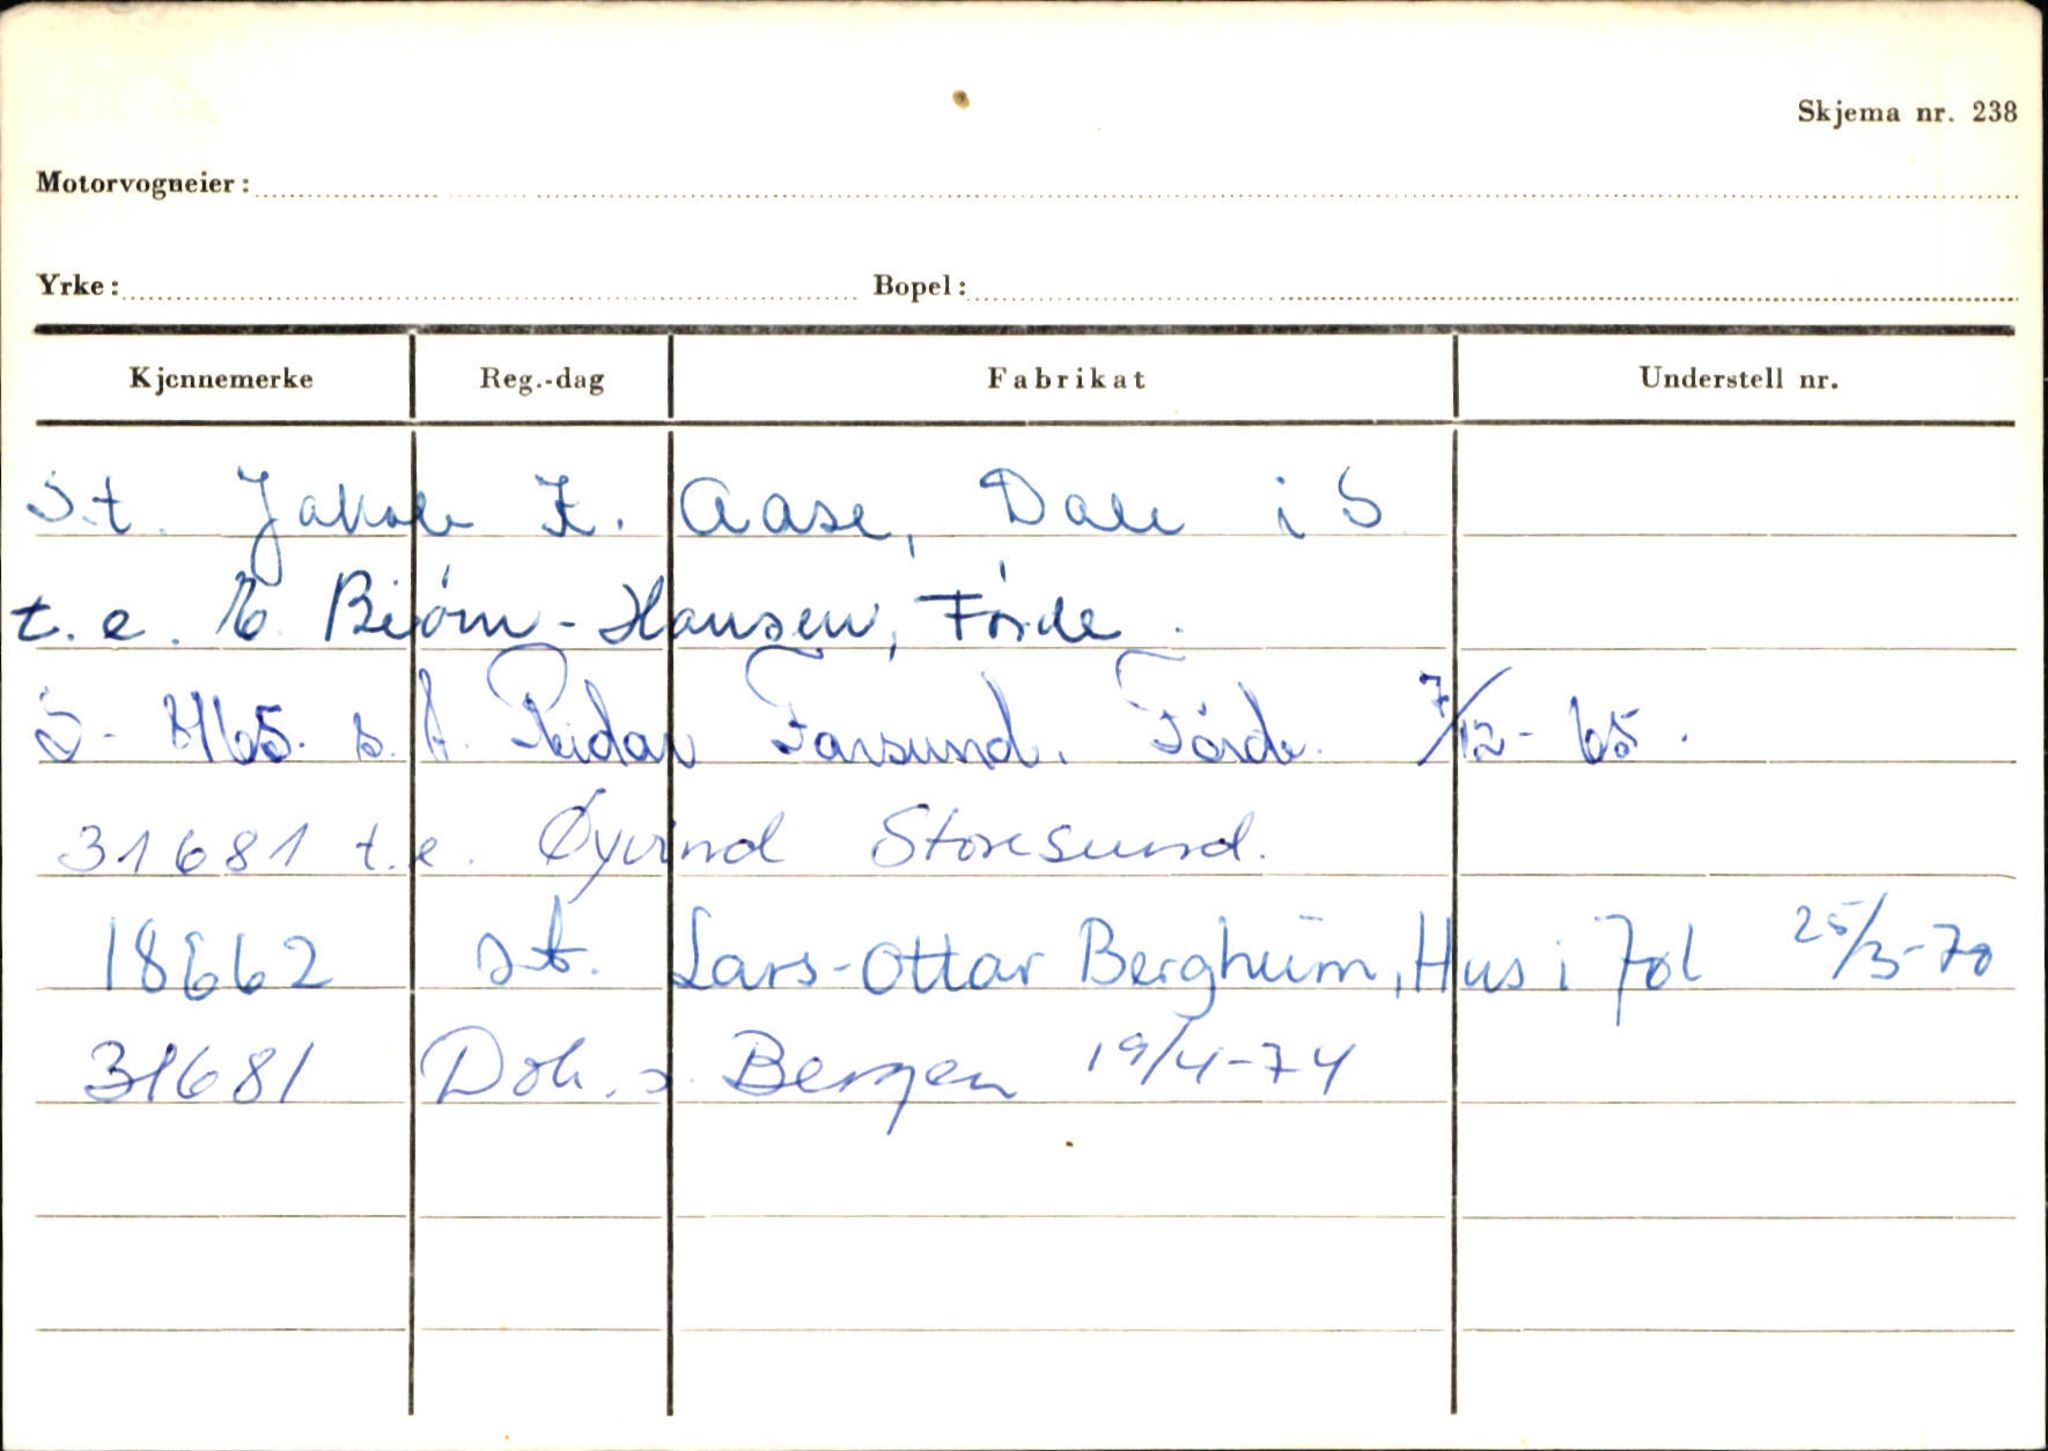 Skjema nr. 238
Motorvogneier:
Yrke: Bopel:
Kjennemerke Reg.-dag Fabrikat Understell nr.
S.t. Jakob Z. Aase, Dale i S
t.e. Bjørn-Hansen, Førde.
S- 4465. s.t. Reidar Farsund. Førde. 7/12-65.
31681 t.e. Øyvind Storesund.
18662 st. Lars-Ottar Berghum, Hus i 7dl 25/3-70
31681 Dok. s. Bergen 19/4-74